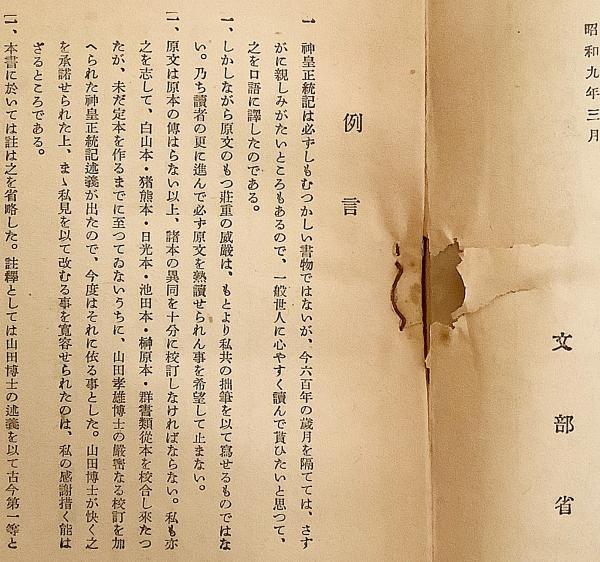 昭和九年三月
文部省
例言
一 神皇正統記は必ずしもむつかしい書物ではないが、今六百年の歳月を隔てては、さす
がに親しみがたいところもあるので、一般世人に心やすく讀んで貰ひたいと思つて、
之を口語に譯したのである。
一、しかしながら原文のもつ莊重の威嚴は、もとより私共の拙筆を以て寫せるものではな
い。乃ち讀者の更に進んで必ず原文を熟讀せられん事を希望して止まない。
一、原文は原本の傳はらない以上、諸本の異同を十分に校訂しなければならない。私も亦
之を志して、白山本・猪熊本・日光本・池田本・榊原本・群書類從本を校合し來たつ
たが、未だ定本を作るまでに至つてゐないうちに、山田孝雄博士の嚴密なる校訂を加
へられた神皇正統記述義が出たので、今度はそれに依る事とした。山田博士が快く之
を承諾せられた上、まゝ私見を以て改むる事を寬容せられたのは、私の感謝措く能は
ざるところである。
一、本書に於いては註は之を省略した。註釋としては山田博士の述義を以て古今第一等と